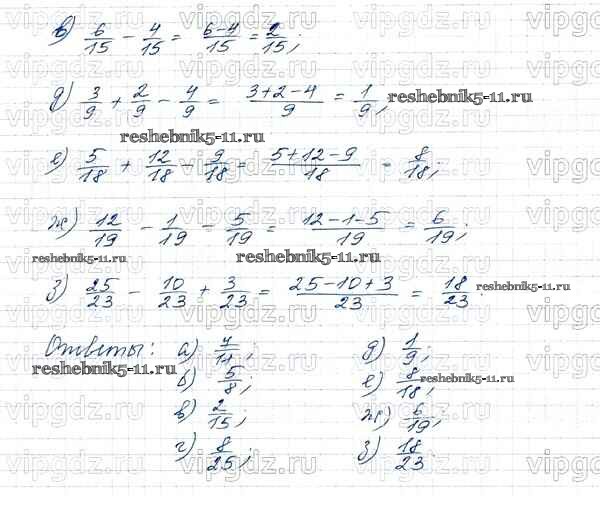 в) 6/15 − 4/15 = (6−4)/15 = 2/15;
д) 3/9 + 2/9 − 4/9 = (3+2−4)/9 = 1/9;
reshebnik5-11.ru
reshebnik5-11.ru
е) 5/18 + 12/18 − 9/18 = (5+12−9)/18 = 8/18;
ж) 12/19 − 1/19 − 5/19 = (12−1−5)/19 = 6/19;
reshebnik5-11.ru
reshebnik5-11.ru
з) 25/23 − 10/23 + 3/23 = (25−10+3)/23 = 18/23.
reshebnik5-11.ru
Ответы: а) 7/11; д) 1/9;
reshebnik5-11.ru
б) 5/8; е) 8/18;
reshebnik5-11.ru
в) 2/15; ж) 6/19;
г) 8/25; з) 18/23.
vipgdz.ru